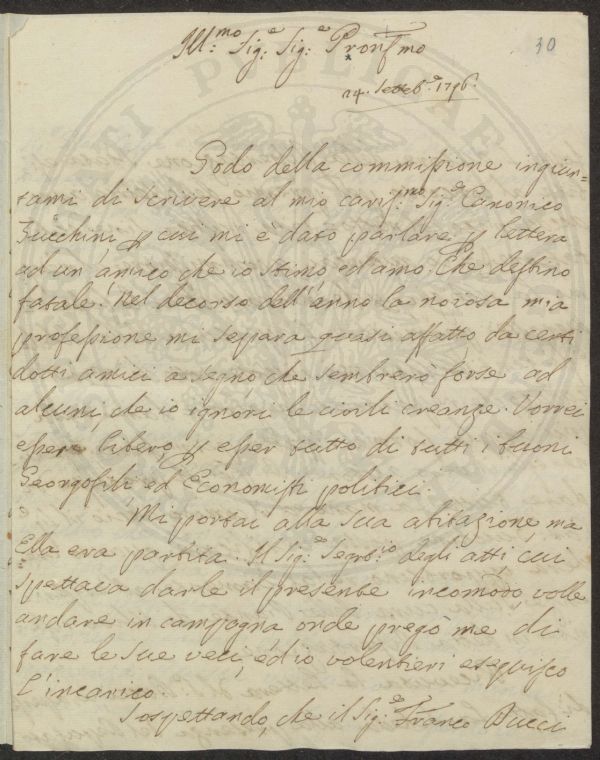 Ill:mo Sig:e Sig:e Pron
30
24. Setteb:e 1796.
Godo della commissione ingiun=
tami di scrivere al mio cariss:mo Sig:e Canonico
Zucchini, p cui mi è dato parlare p lettera
ad un amico che io stimo, ed amo. Che destino
fatale! Nel decorso dell'anno la noiosa mia
professione mi separa quasi affatto da certi
dotti amici a segno, che sembrerò forse ad
alcuni, che io ignori le civili creanze. Vorrei
esser libero p esser tutto di tutti i buoni
Georgofili, ed Economisti politici.
Mi portai alla sua abitazione, ma
Ella era partita. Il Sig:e Segret:io degli atti, cui
spettava darle il presente incomodo, volle
andare in campagna onde pregò me di
fare le sue veci, ed io volentieri eseguisco
l'incarico.
Sospettando, che il Sig:e Franco Bucci